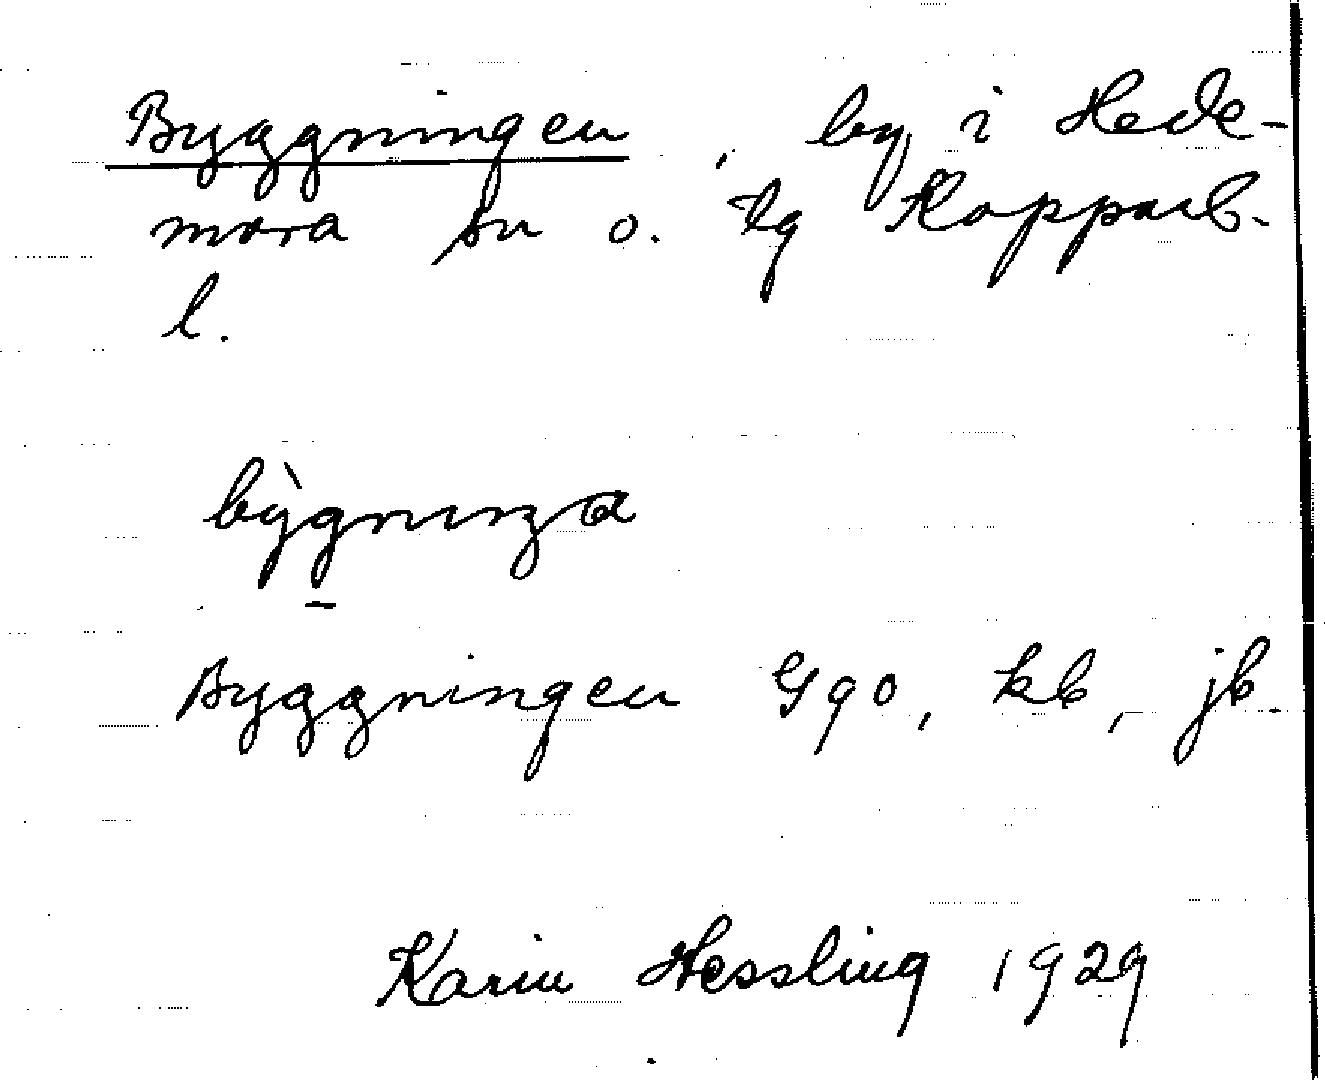 Byggningen, by i Hede-
mora sn o. tg Kopparb.
l.
bỳgnıŋa
Byggningen Gqo, kb, jb.
Karin Hessling 1929